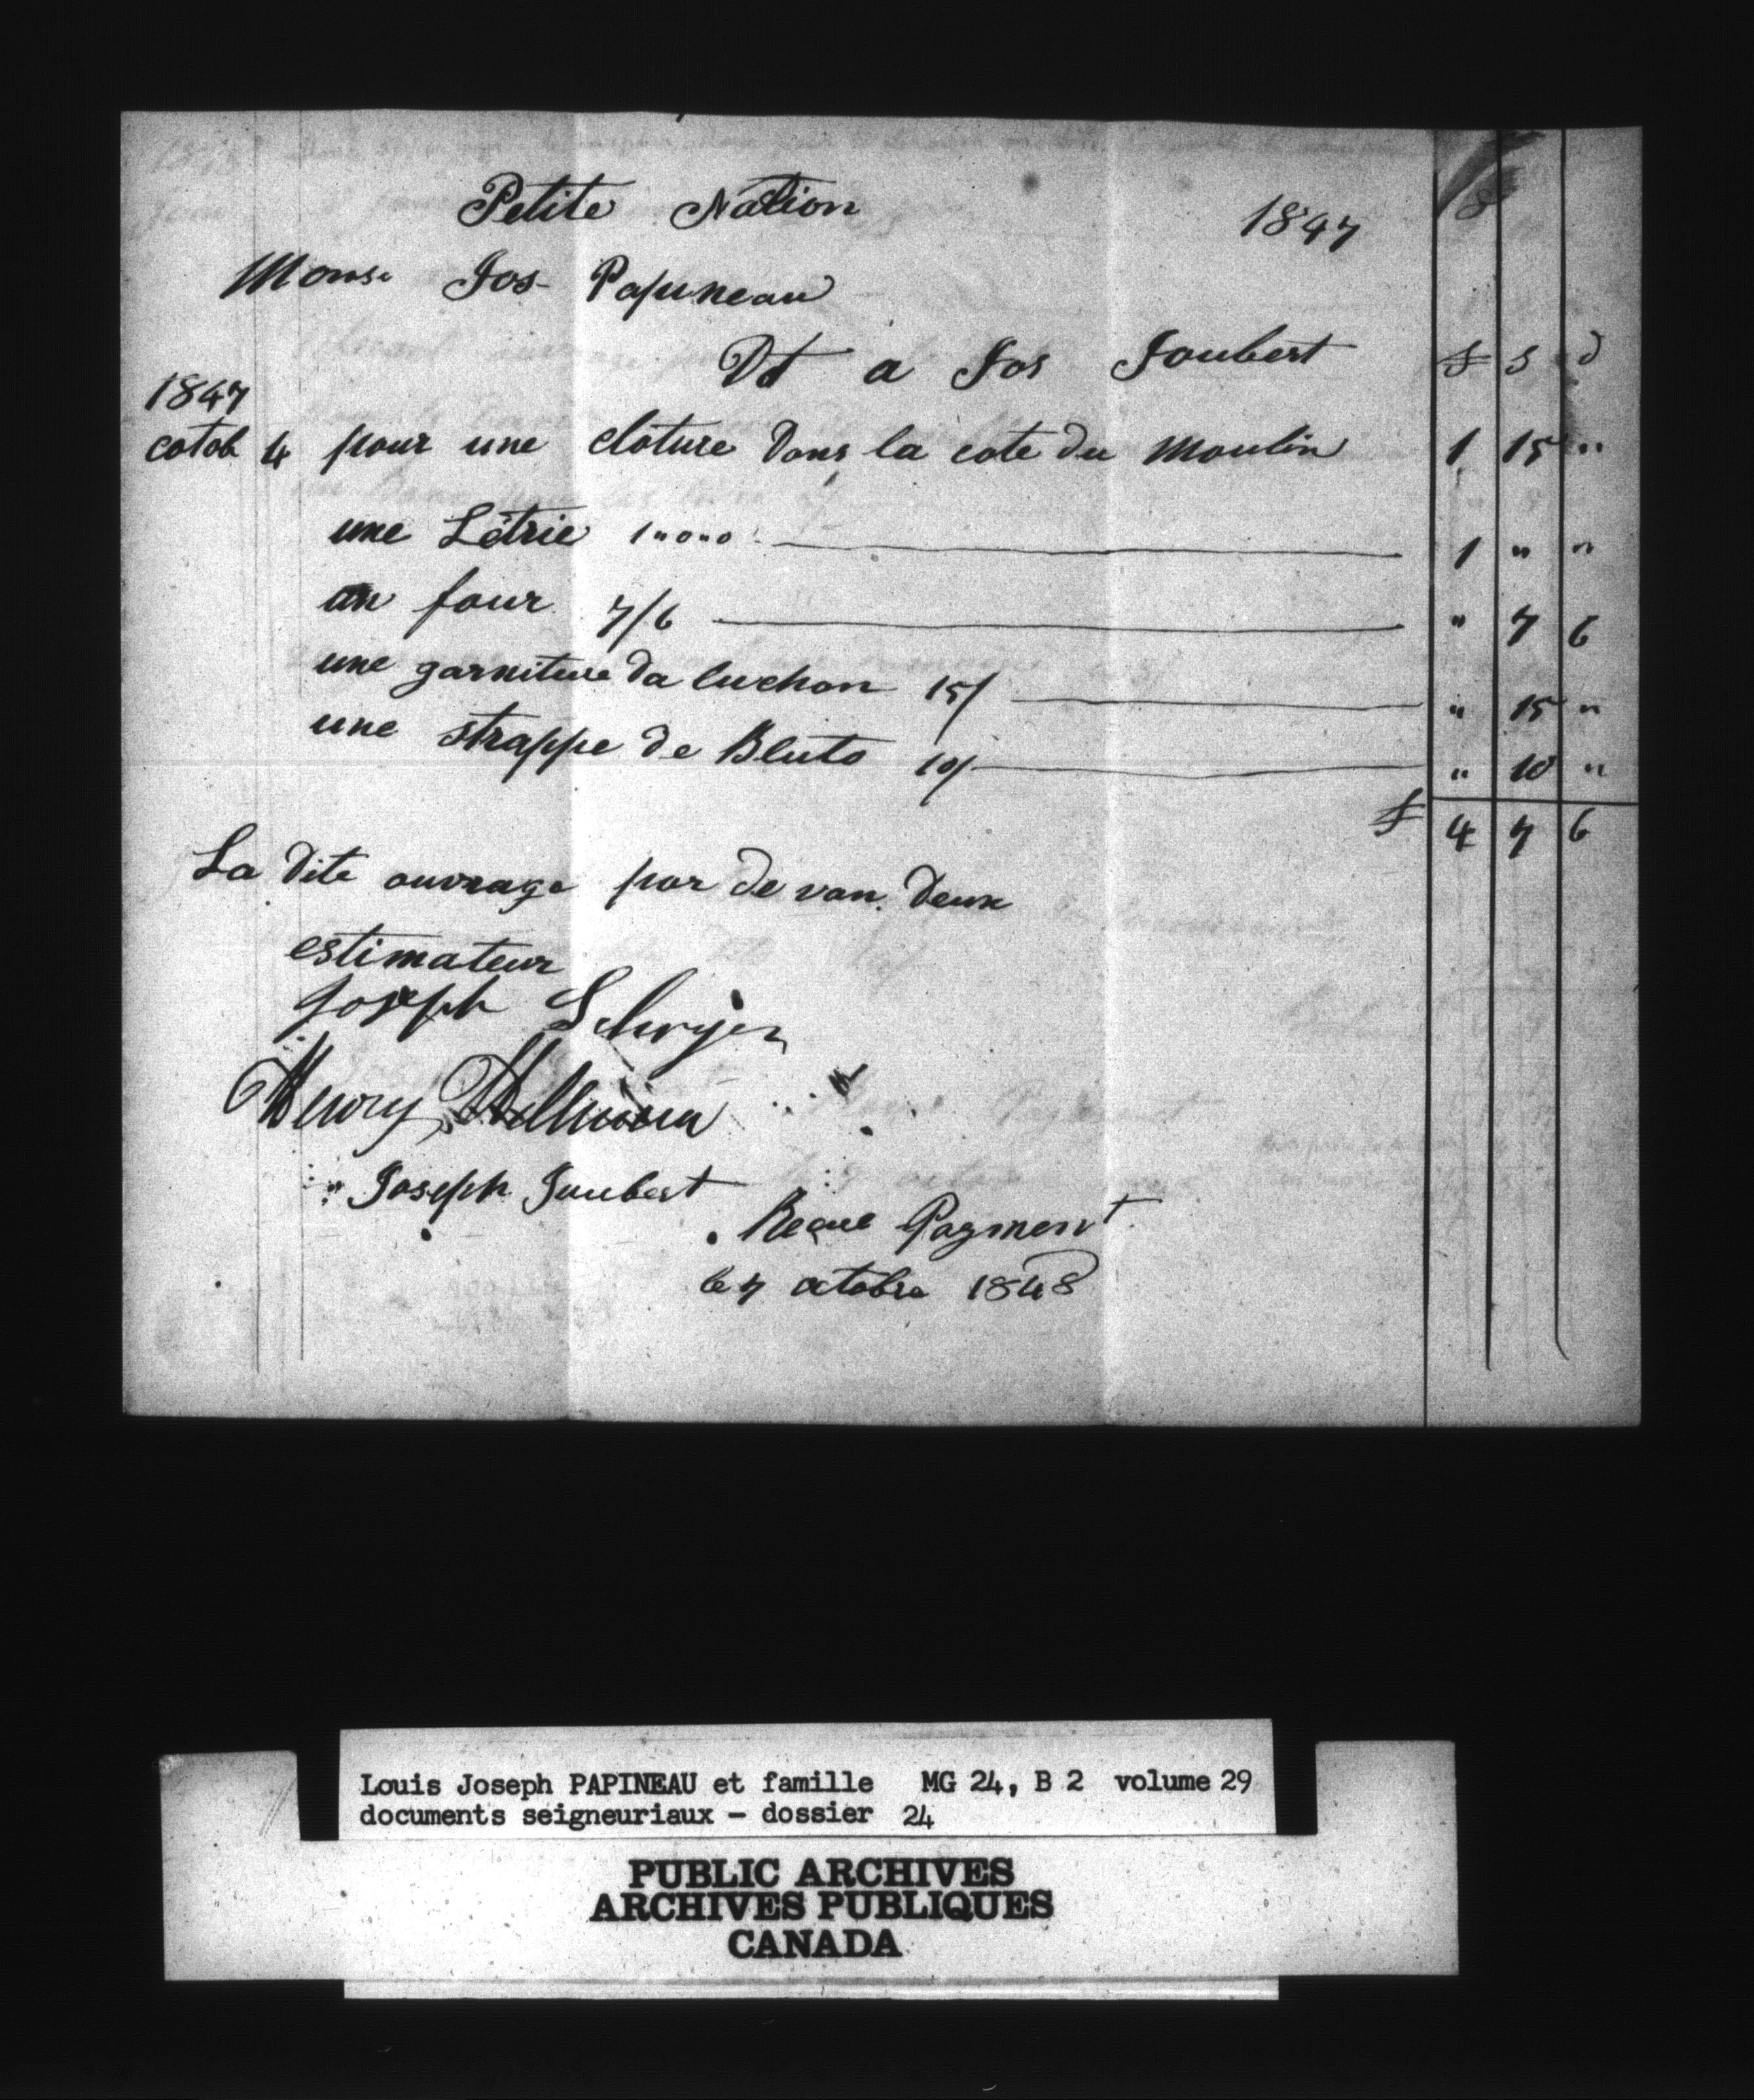 Petite Nation 1847
Monsr Jos Papineau
Dt a Jos Joubert £ s d
1847
octob 4 pour une cloture Dans la cote du Moulin 1 15 "
une Létrie 1"0"0 1 " "
un four 7/6 " 7 6
une garniture da luchon 15/ " 15 "
une strappe de Bluto 10/ " 10 "
£ 4 7 6
La Dite ouvrage par de van Deux
estimateur
Joseph
Henry
Joseph Joubert
Reçue Payment
le 7 octobre 1848
Louis Joseph PAPINEAU et famille MG 24, B 2 volume 29
documents seigneuriaux - dossier 24
PUBLIC ARCHIVES
ARCHIVES PUBLIQUES
CANADA